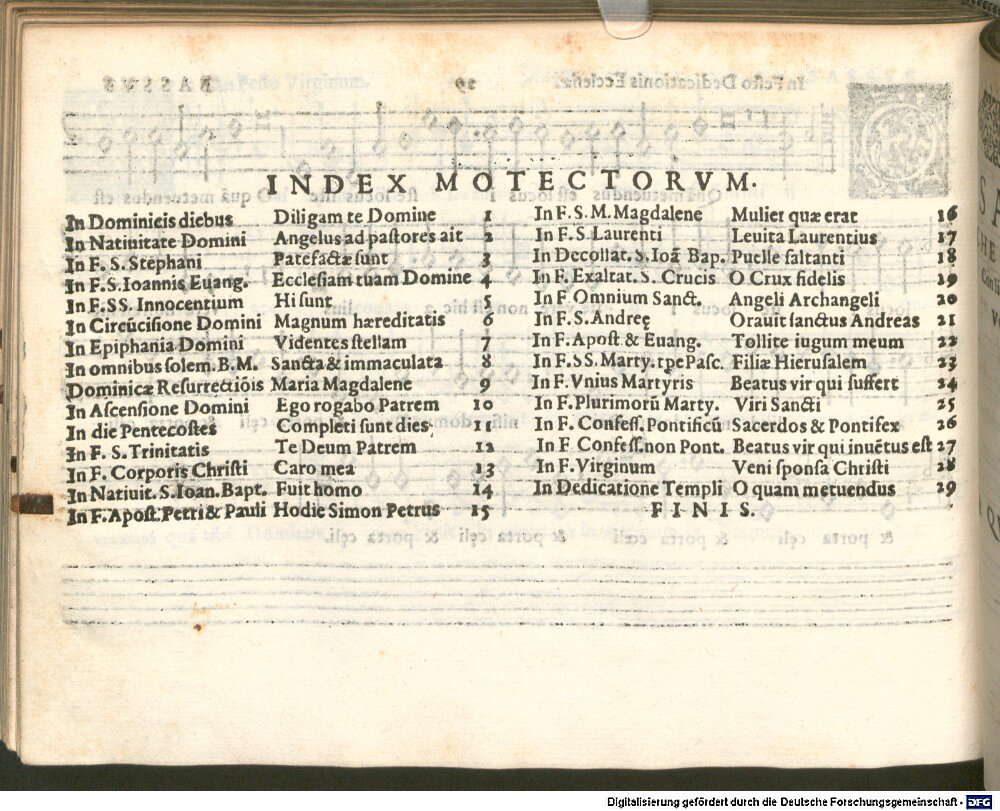 INDEX MOTECTORVM.
In Dominicis diebus Diligam te Domine 1
In Natiuitate Domini Angelus ad pastores ait 2
In F. S. Stephani Patefactæ sunt 3
In F. S. Ioannis Euang. Ecclesiam tuam Domine 4
In F. SS. Innocentium Hi sunt 5
In Circũcisione Domini Magnum hæreditatis 6
In Epiphania Domini Videntes stellam 7
In omnibus solem. B. M. Sancta & immaculata 8
Dominicæ Resurrectiõis Maria Magdalene 9
In Ascensione Domini Ego rogabo Patrem 10
In die Pentecostes Completi sunt dies 11
In F. S. Trinitatis Te Deum Patrem 12
In F. Corporis Christi Caro mea 13
In Natiuit. S. Ioan. Bapt. Fuit homo 14
In F. Apost. Petri & Pauli Hodie Simon Petrus 15
In F. S. M. Magdalene Mulier quæ erat 16
In F. S. Laurenti Leuita Laurentius 17
In Decollat. S. Ioã Bap. Puelle saltanti 18
In F. Exaltat. S. Crucis O Crux fidelis 19
In F. Omnium Sanct. Angeli Archangeli 20
In F. S. Andreę Orauit sanctus Andreas 21
In F. Apost & Euang. Tollite iugum meum 22
In F. SS. Marty. tpe Pasc. Filiæ Hierusalem 23
In F. Vnius Martyris Beatus vir qui suffert 24
In F. Plurimorũ Marty. Viri Sancti 25
In F. Confess. Pontificũ Sacerdos & Pontifex 26
In F. Confess. non Pont. Beatus vir qui inuẽtus est 27
In F. Virginum Veni sponsa Christi 28
In Dedicatione Templi O quam metuendus 29
FINIS.
Digitalisierung gefördert durch die Deutsche Forschungsgemeinschaft - DFG